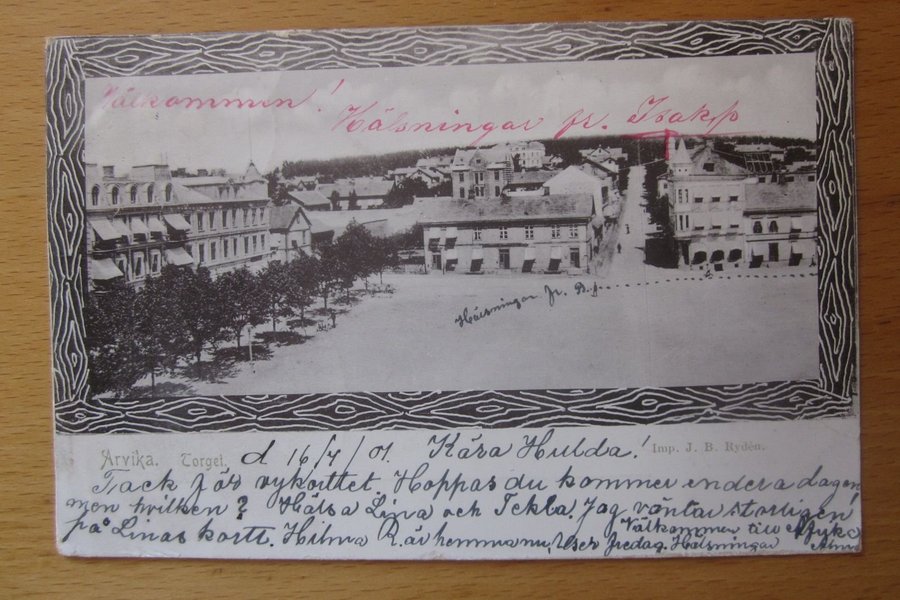 Välkommen!
Hälsningar fr. Isak,
Hälsningar fr. B.
Arvika. Torget. d 16/7/01. Kära Hulda! Imp. J. B. Rydén.
Tack för vykorttet. Hoppas du kommer endera dagen
men hvilken? Hälsa Lina och Tekla. Jag väntar storligen
på Linas kortt. Hilma R. är hemma nu, reser fredag. Hälsningar
Välkommen till